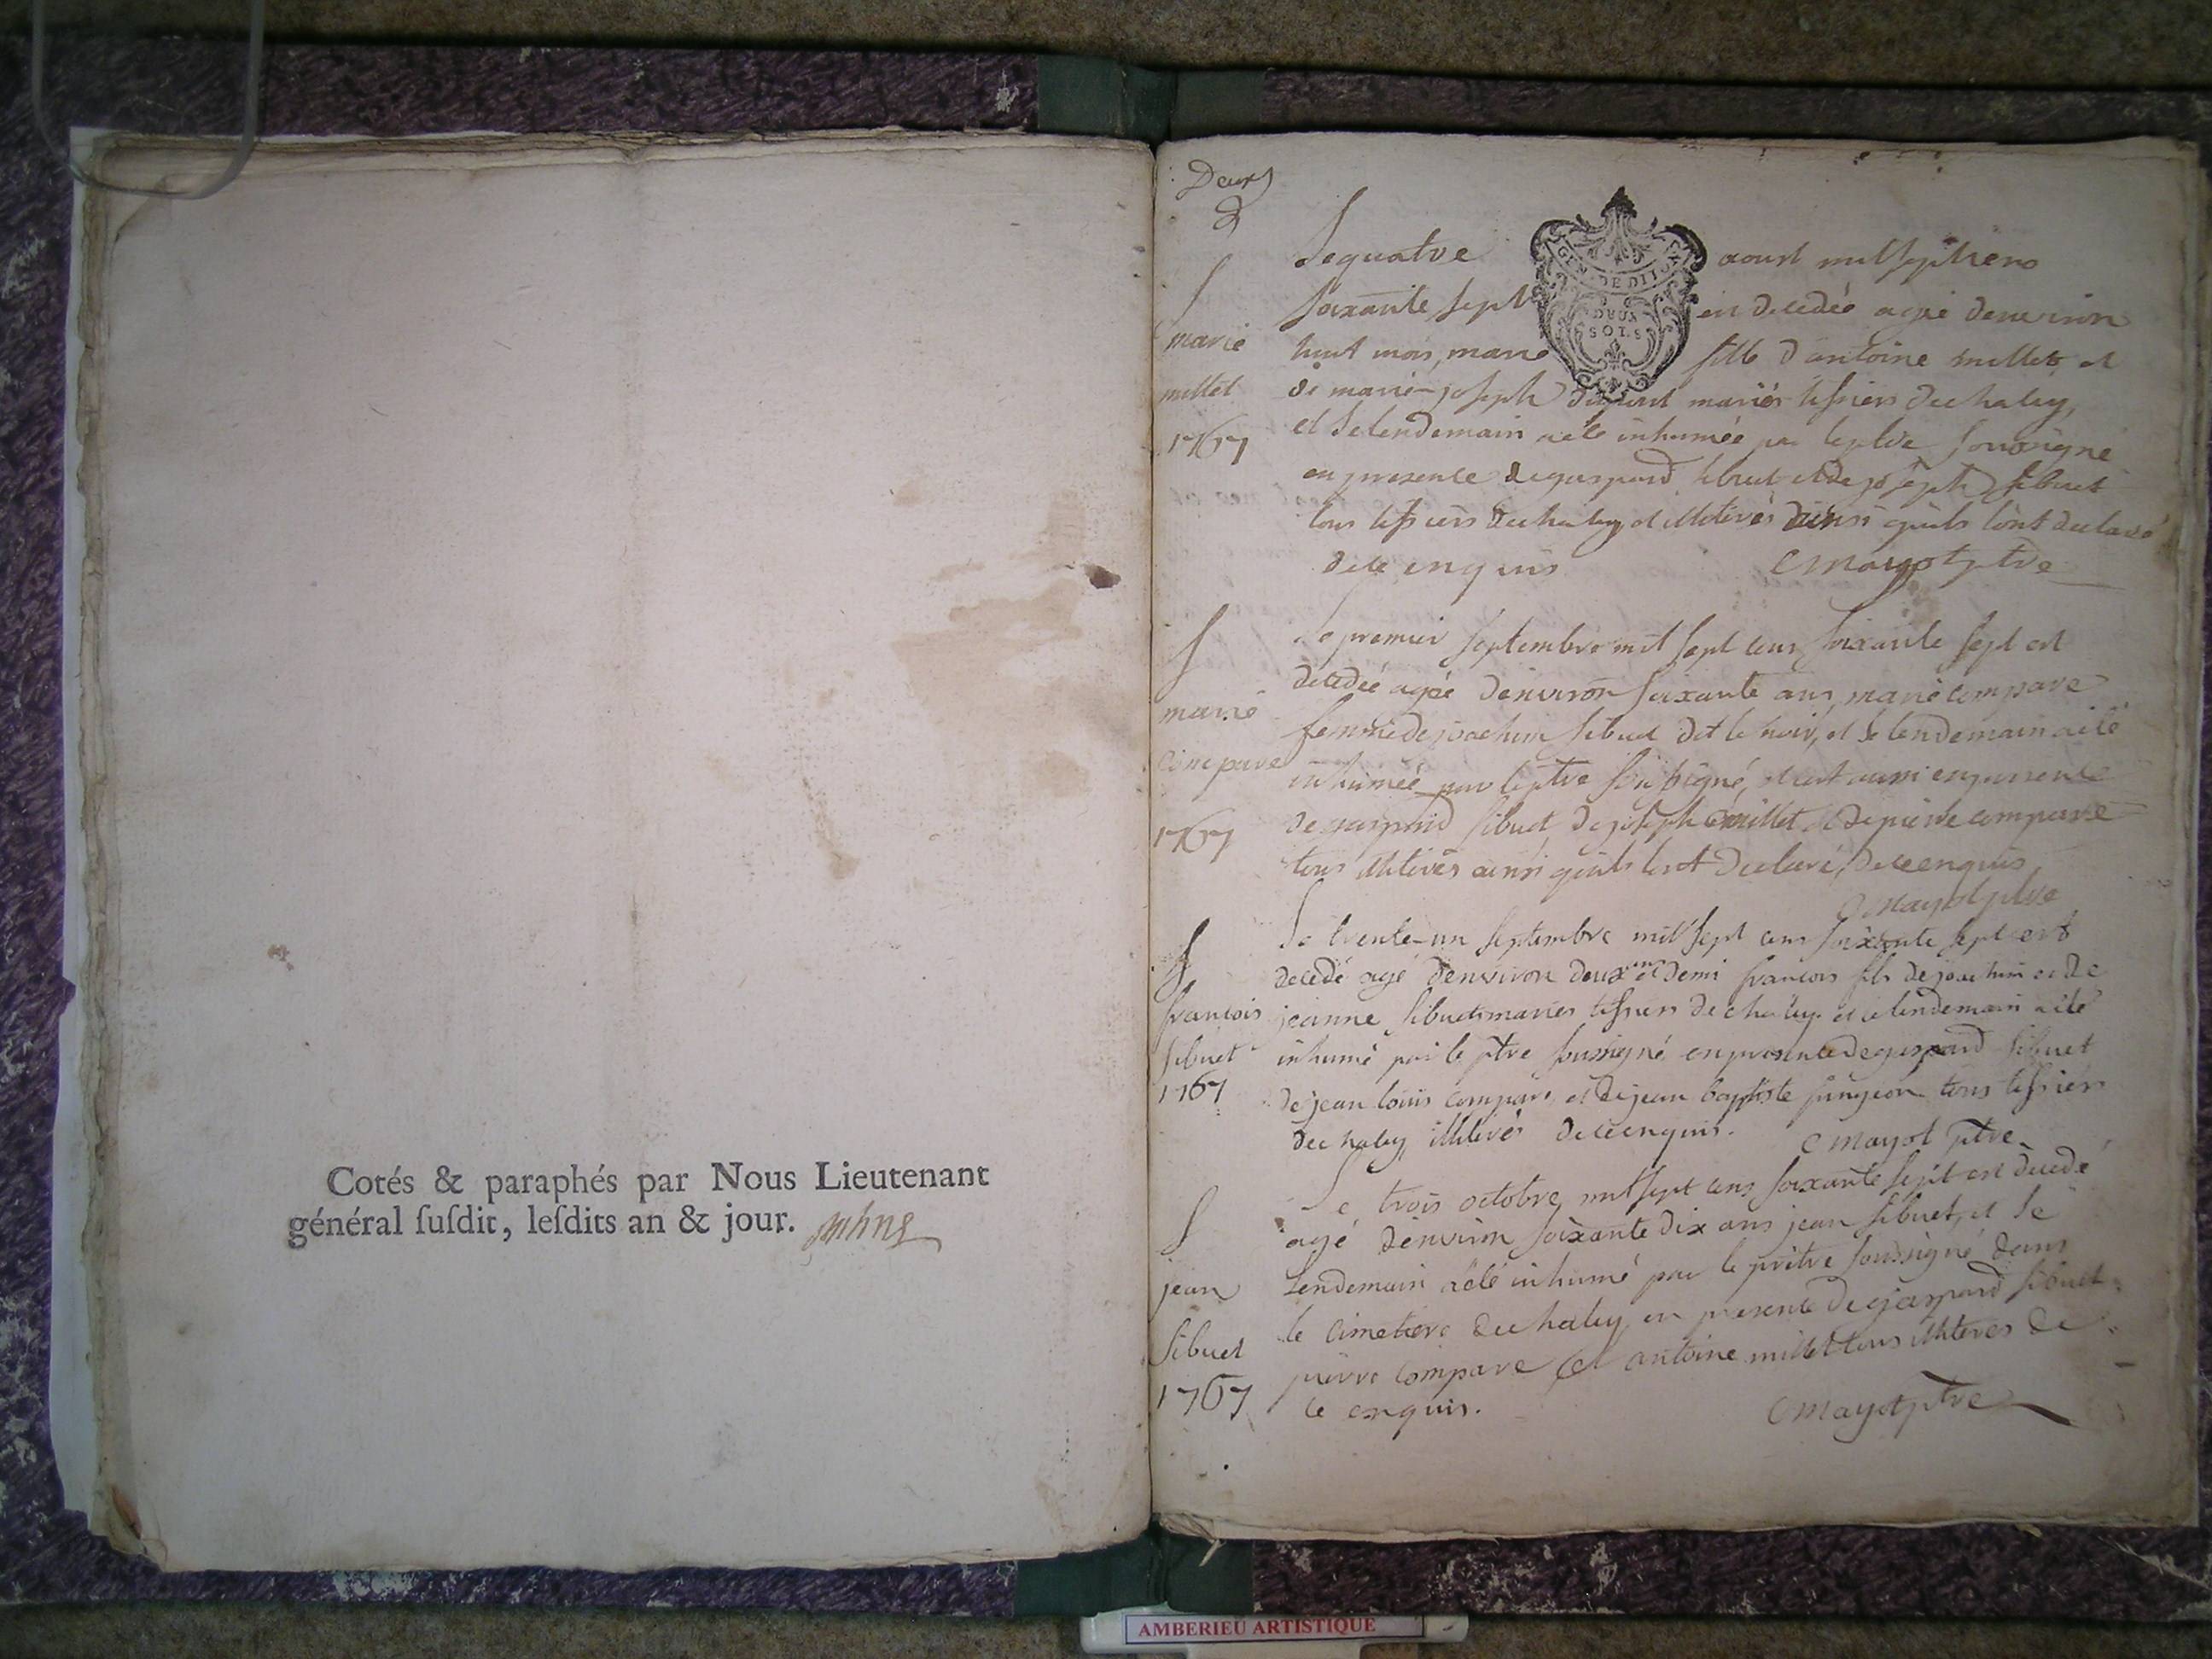 Cotés & paraphés par Nous Lieutenant
général ſuſdit, leſdits an & jour.
Deux
2
S
marie
millet
1767
Le quatre aoust mil sept cens
soixante sept est decedée agée denviron
huit mois, marie fille d'antoine millet, et
de marie-joseph dupont mariés tessiers dechaley,
et le lendemain a été inhumée par le ptre soussigné
en presence de gaspard sibuet et de joseph sibuet
tous tessiers dechaley et illiterés ainsi quils lont declaré
de ce enquis C mayot ptre
S
marie
compare
1767
Le premier septembre mil sept cens soixante sept est
decedée agée denviron soixante ans, marie compare
femme de joachim sibuet dit le noir, et le lendemain a été
inhumée par le ptre soussigné, en presence
de gaspard sibuet de joseph millet et de pierre compare
tous illiterés ainsi quils lont declaré, de ce enquis
C mayot ptre
S
francois
sibuet
1767
Le trente-un septembre mil sept cens soixante sept est
decedé agé denviron deux ans et demi francois fils de joachim et de
jeanne sibuet mariés tessiers de chaley et le lendemain a été
inhumé par le ptre soussigné en presence de gaspard sibuet
de jean louis compare, et de jean baptiste tous tessiers
dechaley, illiterés de ce enquis. C mayot ptre
S
jean
sibuet
1767
Le trois octobre mil sept cens soixante sept est decedé
agé denviron soixante dix ans jean sibuet, et le
lendemain a été inhumé par le prêtre soussigné dans
le cimetiere dechaley en presence de gaspard sibuet
pierre compare et antoine millet tous illiterés de
ce enquis. C mayot ptre
AMBERIEU ARTISTIQUE